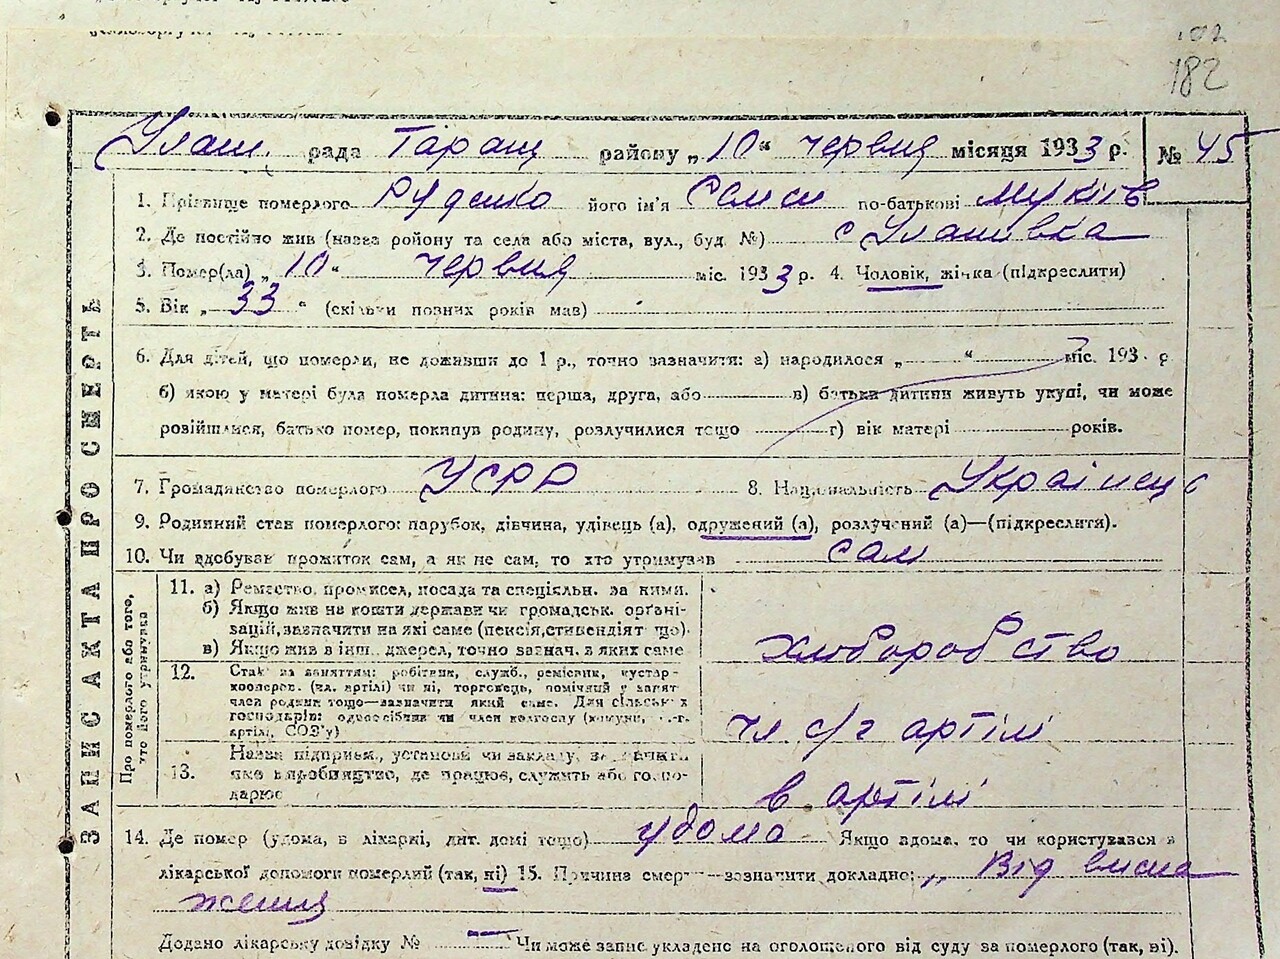 182
Улаш. рада Таращ району „10“ червня місяця 1933 р. № 45
ЗАПИС АКТА ПРО СМЕРТЬ
1. Прізвище померлого Руденко його ім'я по-батькові
2. Де постійно жив (назва району та села або міста, вул., буд. №) с Улашівка
3. Помер(ла) „10“ червня міс. 1933 р. 4. Чоловік, жінка (підкреслити)
5. Вік „33“ (скільки повних років мав)
6. Для дітей, що померли, не доживши до 1 р., точно зазначити: а) народилося „ “ міс. 193 р
б) якою у матері була померла дитина: перша, друга, або в) батьки дитини живуть укупі, чи може
розійшлися, батько помер, покинув родину, розлучилися тощо г) вік матері років.
7. Громадянство померлого УСРР 8. Національність Українець
9. Родинний стан померлого: парубок, дівчина, удівець (а), одружений (а), розлучений (а)—(підкреслити).
10. Чи здобував прожиток сам, а як не сам, то хто утримував сам
Про померлого або того, хто його утримував
11. а) Ремество, промисел, посада та спеціяльн. за ними.
б) Якщо жив на кошти держави чи громадськ. органі-
зацій, зазначити на які саме (пенсія, стипендіят що).
в) Якщо жив в інш. джерел, точно зазнач. з яких саме
хлібороб ство
12. Стан за заняттям: робітник, служб., ремісник, кустар-
кооперов. (чл. артілі) чи ні, торговець, помічний у занят
член родини тощо—зазначити який саме. Для сільськ х
господарів: одноосібник чи член колгоспу (комуни,
артілі, СОЗ'у)
чл с/г артілі
Назва підприєм., установи чи закладу, зазначити
13. яке виробництво, де працює, служить або госпо-
дарює
в артілі
14. Де помер (удома, в лікарні, дит. домі тощо) удома Якщо вдома, то чи користувався з
лікарської допомоги померлий (так, ні) 15. Причина смерти—зазначити докладно: „ Від висна
ження
Додано лікарську довідку № — Чи може запис укладено на оголошеного від суду за померлого (так, ні).